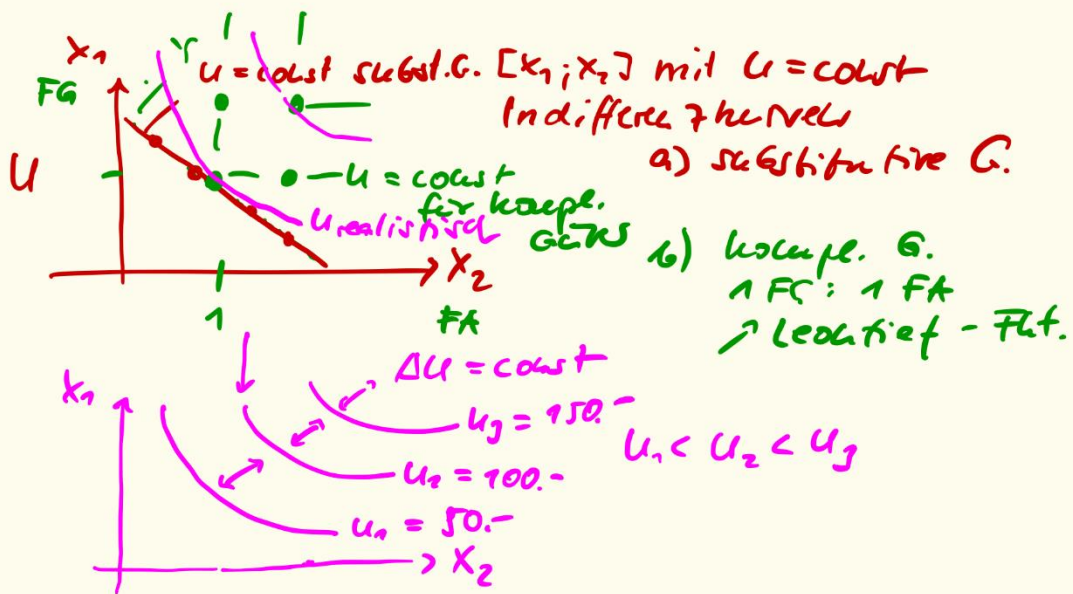 x₁
FG
U = const subst. G. [x₁; x₂] mit U = const
Indifferenzkurven
a) substitutive G.
U
U = const
für kompl.
Güter
U realistisch
b) kompl. G.
1 FG : 1 FA
↗ Leontief - Fkt.
x₂
1
FA
ΔU = const
x₁
u₃ = 150.-
u₁ < u₂ < u₃
u₂ = 100.-
u₁ = 50.-
x₂